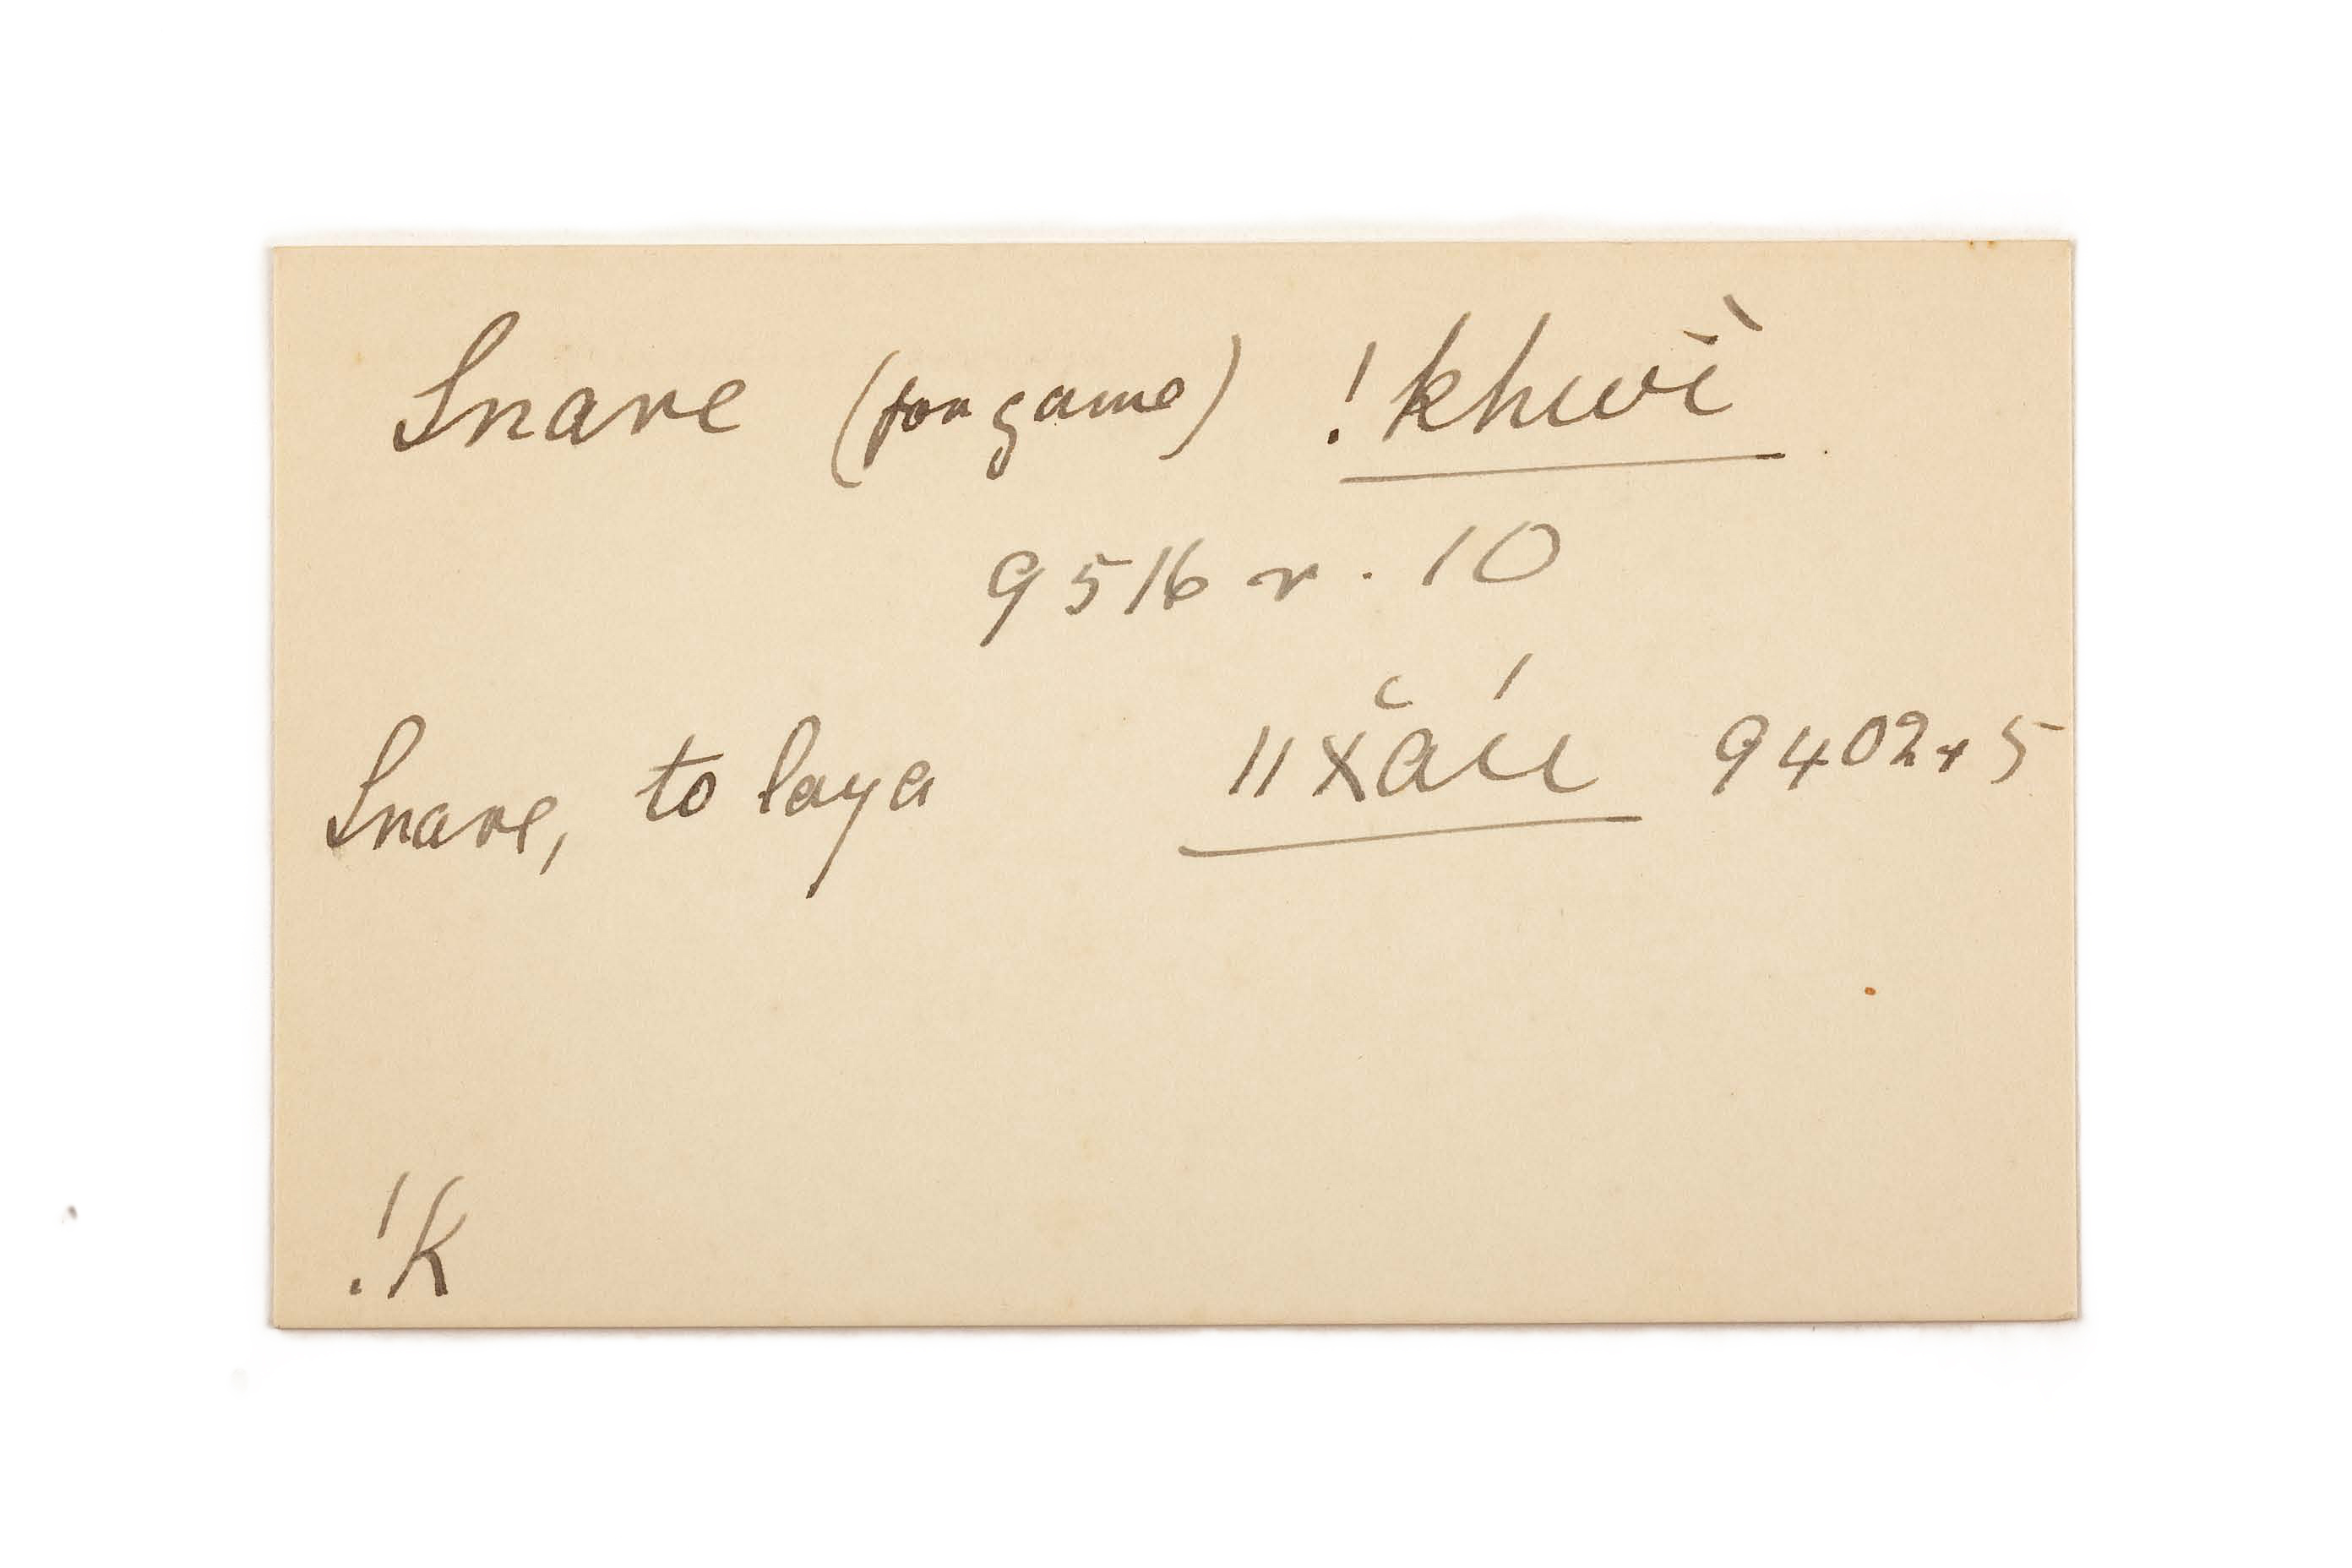 Snare (for game) !khwĭ̀
9516 r. 10
Snare, to lay a ǁxăú 9402 r 5
!k